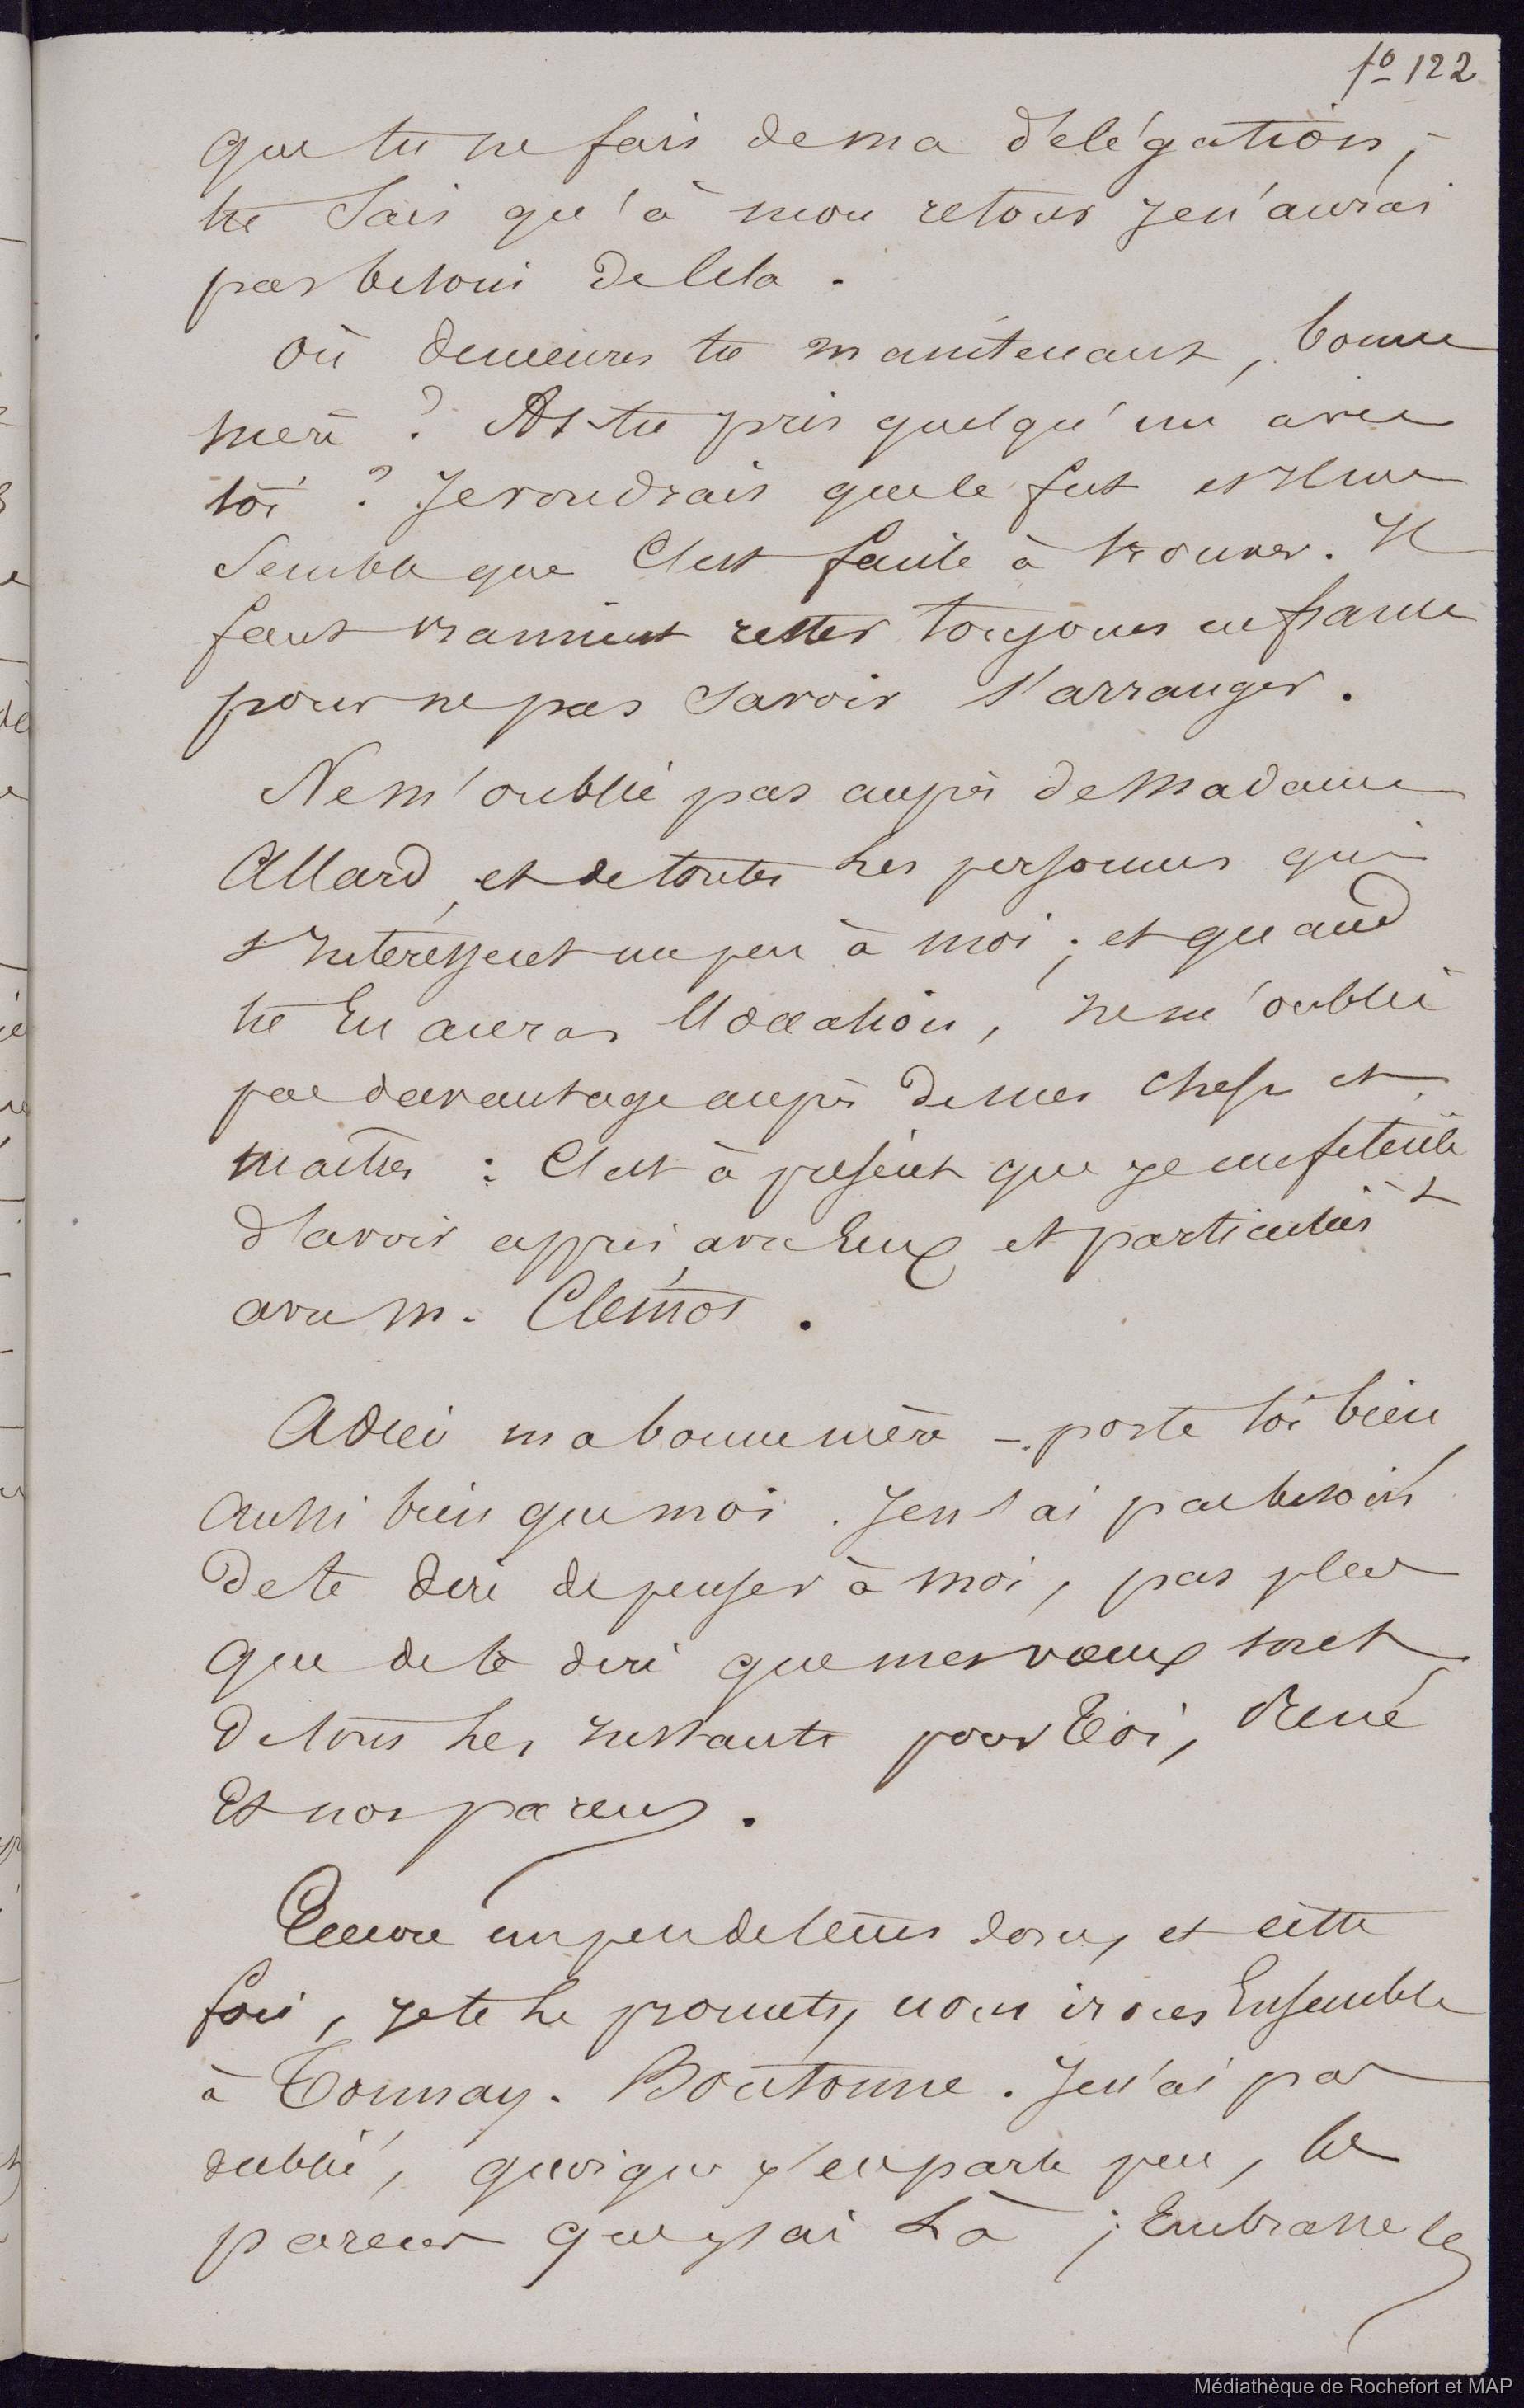 fo 122
que tu ne fais de ma délégation ;
tu sais qu'à mon retour je n'aurai
pas besoin de cela .
Où demeures tu maintenant , bonne
mère ? As-tu pris quelqu'un avec
toi ? Je voudrais que ce fut et il me
semble que c'est facile à trouver . Il
faut vraiment rester toujours en france
pour ne pas savoir s'arranger .
Ne m'oublie pas auprès de Madame
Allard , et de toutes les personnes qui
s'intéressent un peu à moi ; et quand
tu en auras l'occasion , ne m'oublie
pas davantage auprès de mes chefs et
maîtres : C'est à présent que je me félicite
d'avoir appris avec eux , et particulièrt
avec M. Clémot .
Adieu ma bonne mère - porte toi bien ,
aussi bien que moi . Je n'ai pas besoin
de te dire de penser à moi , pas plus
que de te dire que mes vœux sont
de tous les instants pour toi , René
et nos parens .
Encore un peu de tems donc , et cette
fois , je te le promets , nous irons ensemble
à Tonnay-Boutonne . Je n'ai pas
oublié , quoique j'en parle peu , les
parens que j'ai là ; Embrasse les
Médiathèque de Rochefort et MAP